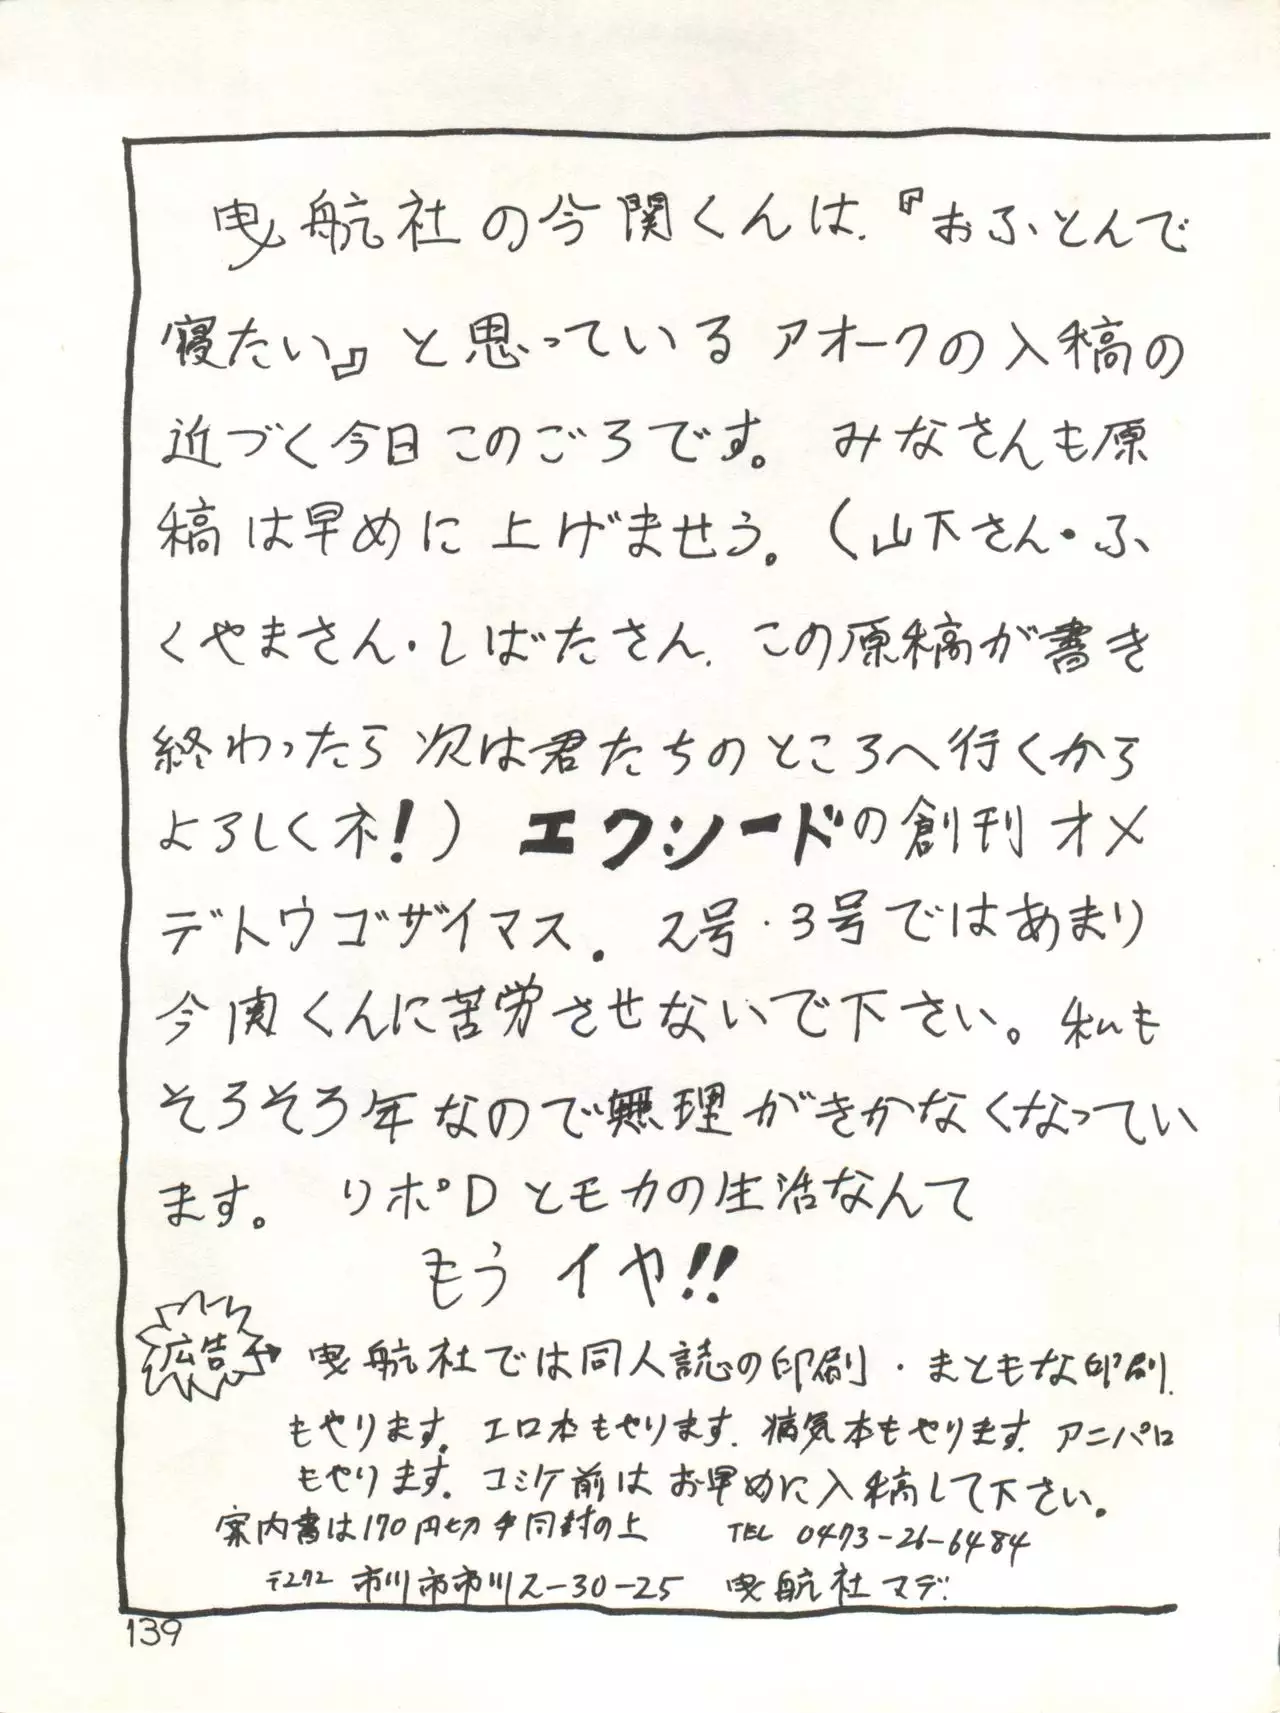 曳航社の今関くんは、『おふとんで
寝たい』と思っているアオークの入稿の
近づく今日このごろです。 みなさんも原
稿は早めに上げませう。(山下さん・ふ
くやまさん・しばたさん、この原稿が書き
終わったら次は君たちのところへ行くから
よろしくネ!) エクシードの創刊オメ
デトウゴザイマス。 2号・3号ではあまり
今関くんに苦労させないで下さい。私も
そろそろ年なので無理がきかなくなってい
ます。 リポDとモカの生活なんて
もうイヤ!!
広告 曳航社では同人誌の印刷・まともな印刷
もやります。エロ本もやります。病気本もやります。アニパロ
もやります。コミケ前はお早めに入稿して下さい。
案内書は170円切手同封の上 TEL 0473-26-6484
〒272 市川市市川2-30-25 曳航社マデ。
139